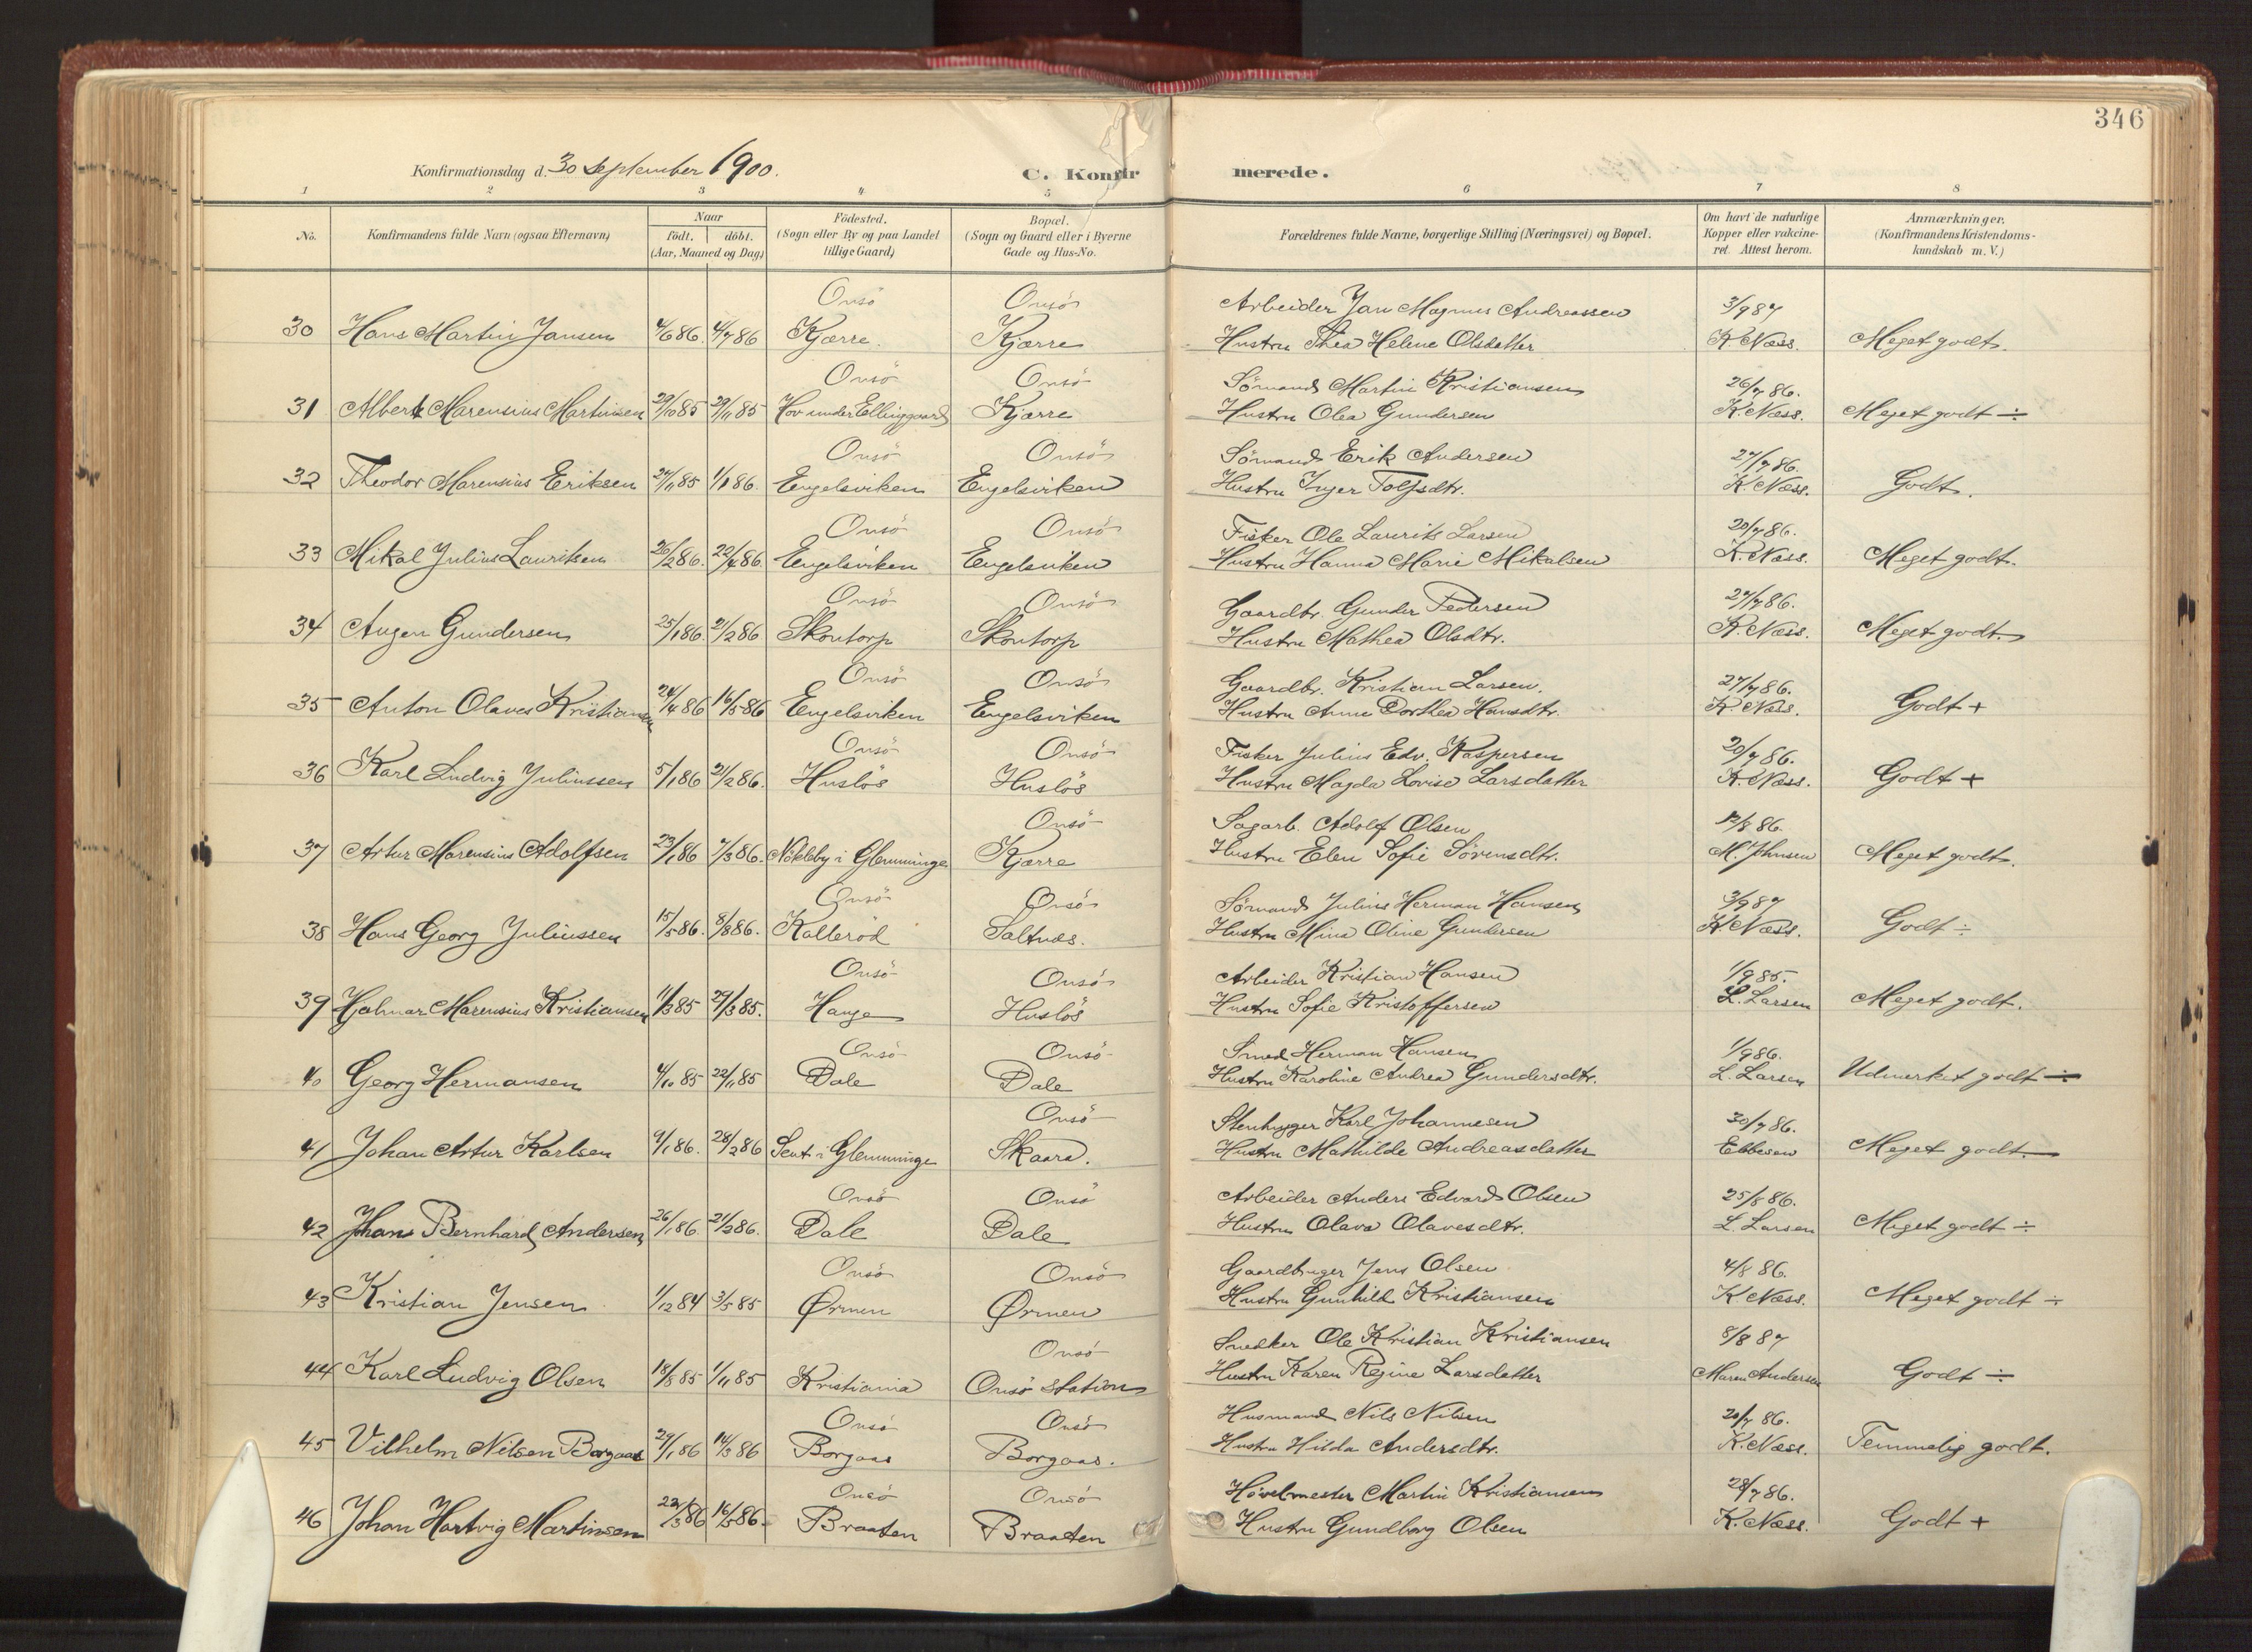 346
Konfirmationsdag d. 30 September 1900.
C. Konfirmerede.
1 2 3 4 5 6 7 8
No.
Konfirmandens fulde Navn (ogsaa Efternavn)
Naar
födt. döbt.
(Aar, Maaned og Dag)
Födested.
(Sogn eller By og paa Landet
tillige Gaard)
Bopæl.
(Sogn og Gaard eller i Byerne
Gade og Hus-No.
Forældrenes fulde Navne, borgerlige Stilling (Næringsvei) og Bopæl.
Om havt de naturlige
Kopper eller vakcine-
ret. Attest herom.
Anmærkninger.
(Konfirmandens Kristendoms-
kundskab m. V.)
Onsö Onsö Arbeider Jan Magnus Andreassen 3/9 87
30 Hans Martin Jansen 4/6 86. 4/7 86 Kjærre. Kjærre Hustru Thea Helene Olsdatter K. Næss. Meget godt.
Onsö Onsö Sömand Martin Kristiansen 26/7 86.
31 Albert Marensius Martinsen 29/10 85 29/11 85 Hov under Ellinggaard Kjærre Hustru Olea Gundersen K. Næss. Meget godt ÷
Onsö Onsö Sömand Erik Andersen 27/7 86.
32 Theodor Marensius Eriksen 24/11 85 1/1 86. Engelsviken Engelsviken Hustru Inger Tolfsdtr. K. Næss. Godt.
Onsö Onsö Fisker Ole Laurits Larsen 20/7 86.
33 Mikal Julius Lauritsen 26/2 86. 22/4 86. Engelsviken Engelsviken Hustru Hanna Marie Mikalsen K. Næss. Meget godt.
Onsö Onsö Gaardbr. Gunder Pedersen 27/7 86.
34 Augen Gundersen 25/1 86. 21/2 86 Skontorp Skontorp Hustru Mathea Olsdtr. K. Næss. Meget godt.
Onsö Onsö Gaardbr. Kristian Larsen. 27/7 86.
35 Anton Olaves Kristiansen 24/4 86 16/5 86 Engelsviken Engelsviken Hustru Anne Dorthea Hansdtr. K. Næss. Godt +
Onsö Onsö Fisker Julius Edv. Kaspersen 20/7 86.
36 Karl Ludvig Juliussen 5/1 86 21/2 86. Huslös Huslös Hustru Magda Lovise Larsdatter K. Næss. Godt +
Onsö Sagarb. Adolf Olsen 12/8 86.
37 Artur Marensius Adolfsen 23/1 86 7/3 86. Nökleby i Glemminge Kjærre Hustru Elen Sofie Sörensdtr. M. Johnsen Meget godt.
Onsö Onsö Sömand Julius Herman Hansen 3/9 87
38 Hans Georg Juliussen 15/5 86. 8/8 86. Kalleröd Saltnes. Hustru Mina Oline Gundersen K. Næss. Godt ÷
Onsö Onsö Arbeider Kristian Hansen 1/9 85.
39 Hjalmar Marensius Kristiansen 11/3 85 29/3 85. Hauge Huslös Hustru Sofie Kristoffersen L. Larsen Meget godt.
Onsö Onsö Smed Herman Hansen 1/9 86.
40 Georg Hermansen 4/10 85 22/11 85 Dale Dale Hustru Karoline Andrea Gundersdtr. L. Larsen Udmerket godt ÷
Onsö Stenhugger Karl Johannesen 30/7 86.
41 Johan Artur Karlsen 9/1 86. 28/2 86 i Glemminge Skaara. Hustru Mathilde Andreasdatter Ebbesen Meget godt.
Onsö Onsö Arbeider Anders Edvard Olsen 25/8 86.
42 Johans Bernhard Andersen 26/1 86. 21/2 86. Dale Dale Hustru Olava Olavesdtr. L. Larsen Meget godt ÷
Onsö Onsö Gaardbruger Jens Olsen 4/8 86.
43 Kristian Jensen 1/12 84 3/5 85 Ørmen Ørmen Hustru Gunhild Kristiansen K. Næss. Meget godt ÷
Onsö Snedker Ole Kristian Kristiansen 8/8 87
44 Karl Ludvig Olsen 18/8 85 1/11 85 Kristiania Onsö Station Hustru Karen Regine Larsdatter Maren Andersen Godt ÷
Onsö Onsö Husmand Nils Nilsen 20/7 86.
45 Vilhelm Nilsen Borgaas 29/1 86 14/3 86 Borgaas Borgaas. Hustru Hilda Andersdtr. K. Næss. Temmelig godt.
Onsö Onsö Hövelmester Martin Kristiansen 28/7 86.
46 Johan Hartvig Martinsen 22/3 86 16/5 86. Braaten Braaten Hustru Gundborg Olsen K. Næss. Godt +